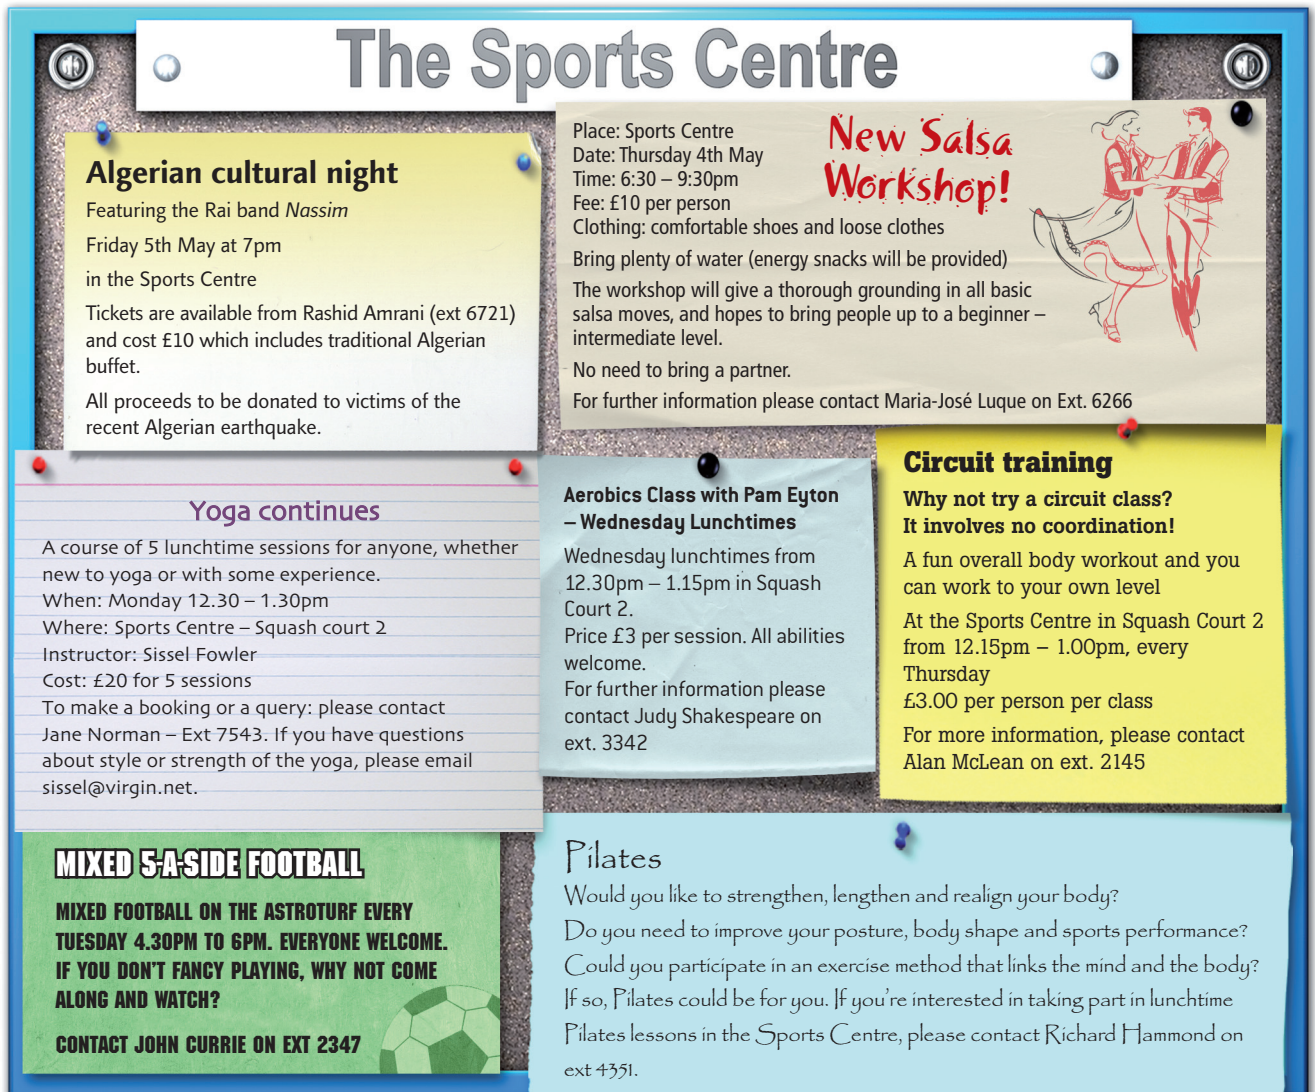 The Sports Centre
Algerian cultural night
Featuring the Rai band Nassim
Friday 5th May at 7pm
in the Sports Centre
Tickets are available from Rashid Amrani (ext 6721)
and cost £10 which includes traditional Algerian
buffet.
All proceeds to be donated to victims of the
recent Algerian earthquake.
New Salsa
Workshop!
Place: Sports Centre
Date: Thursday 4th May
Time: 6:30 – 9:30pm
Fee: £10 per person
Clothing: comfortable shoes and loose clothes
Bring plenty of water (energy snacks will be provided)
The workshop will give a thorough grounding in all basic
salsa moves, and hopes to bring people up to a beginner –
intermediate level.
No need to bring a partner.
For further information please contact Maria-José Luque on Ext. 6266
Yoga continues
A course of 5 lunchtime sessions for anyone, whether
new to yoga or with some experience.
When: Monday 12.30 – 1.30pm
Where: Sports Centre – Squash court 2
Instructor: Sissel Fowler
Cost: £20 for 5 sessions
To make a booking or a query: please contact
Jane Norman – Ext 7543. If you have questions
about style or strength of the yoga, please email
sissel@virgin.net.
Aerobics Class with Pam Eyton
– Wednesday Lunchtimes
Wednesday lunchtimes from
12.30pm – 1.15pm in Squash
Court 2.
Price £3 per session. All abilities
welcome.
For further information please
contact Judy Shakespeare on
ext. 3342
Circuit training
Why not try a circuit class?
It involves no coordination!
A fun overall body workout and you
can work to your own level
At the Sports Centre in Squash Court 2
from 12.15pm – 1.00pm, every
Thursday
£3.00 per person per class
For more information, please contact
Alan McLean on ext. 2145
MIXED 5-A-SIDE FOOTBALL
MIXED FOOTBALL ON THE ASTROTURF EVERY
TUESDAY 4.30PM TO 6PM. EVERYONE WELCOME.
IF YOU DON'T FANCY PLAYING, WHY NOT COME
ALONG AND WATCH?
CONTACT JOHN CURRIE ON EXT 2347
Pilates
Would you like to strengthen, lengthen and realign your body?
Do you need to improve your posture, body shape and sports performance?
Could you participate in an exercise method that links the mind and the body?
If so, Pilates could be for you. If you're interested in taking part in lunchtime
Pilates lessons in the Sports Centre, please contact Richard Hammond on
ext 4351.